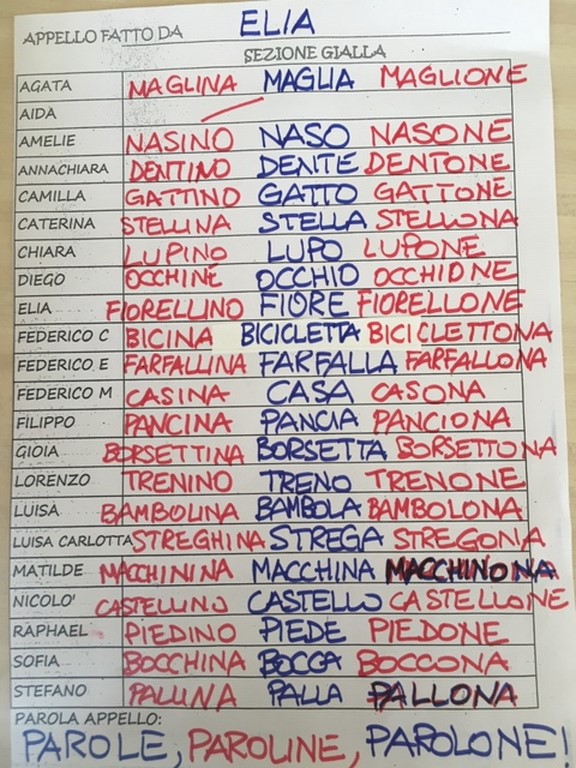 APPELLO FATTO DA ELIA
SEZIONE GIALLA
AGATA MAGLINA MAGLIA MAGLIONE
AIDA
AMELIE NASINO NASO NASONE
ANNACHIARA DENTINO DENTE DENTONE
CAMILLA GATTINO GATTO GATTONE
CATERINA STELLINA STELLA STELLONA
CHIARA LUPINO LUPO LUPONE
DIEGO OCCHINE OCCHIO OCCHIONE
ELIA FIORELLINO FIORE FIORELLONE
FEDERICO C BICINA BICICLETTA BICICLETTONA
FEDERICO E FARFALLINA FARFALLA FARFALLONA
FEDERICO M CASINA CASA CASONA
FILIPPO PANCINA PANCIA PANCIONA
GIOIA BORSETTINA BORSETTA BORSETTONA
LORENZO TRENINO TRENO TRENONE
LUISA BAMBOLINA BAMBOLA BAMBOLONA
LUISA CARLOTTA STREGHINA STREGA STREGONA
MATILDE MACCHININA MACCHINA MACCHINONA
NICOLO' CASTELLINO CASTELLO CASTELLONE
RAPHAEL PIEDINO PIEDE PIEDONE
SOFIA BOCCHINA BOCCA BOCCONA
STEFANO PALLINA PALLA PALLONA
PAROLA APPELLO:
PAROLE, PAROLINE, PAROLONE!